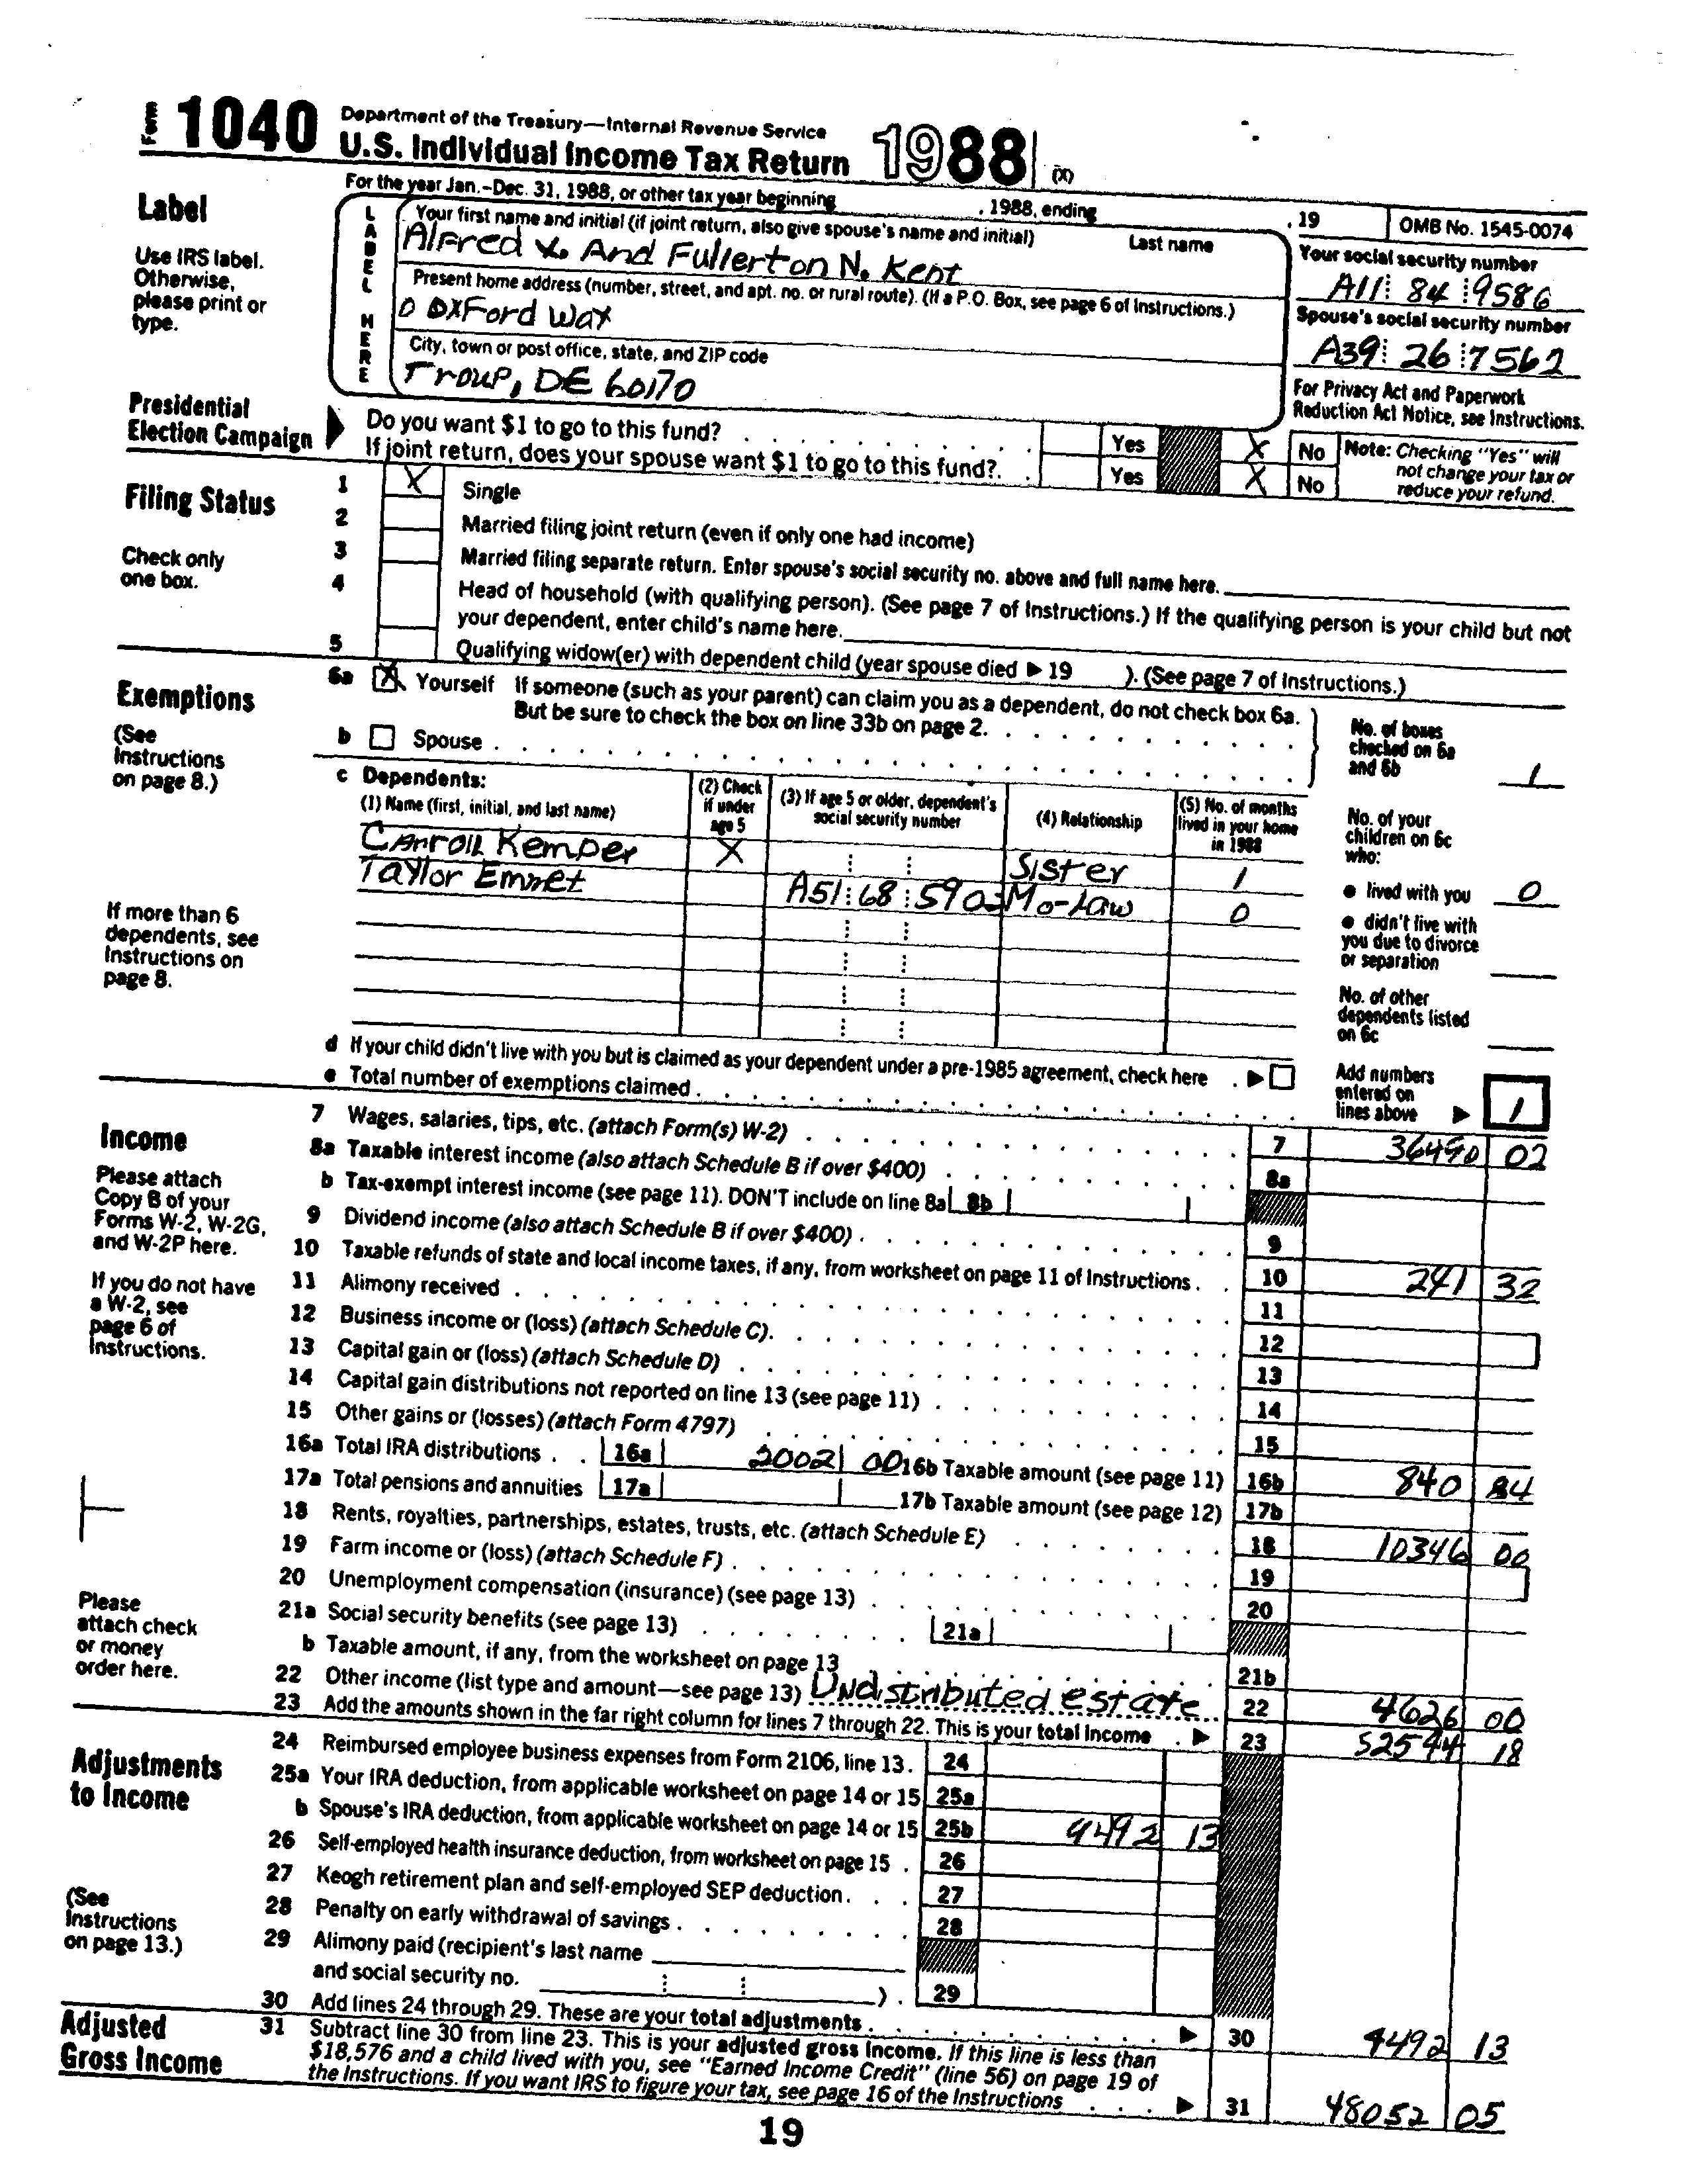 Form 1040 Department of the Treasury—Internal Revenue Service
U.S. Individual Income Tax Return 1988 (X)
For the year Jan.-Dec. 31, 1988, or other tax year beginning , 1988, ending , 19 OMB No. 1545-0074
Label
Use IRS label.
Otherwise,
please print or
type.
LABEL HERE
Your first name and initial (if joint return, also give spouse's name and initial) Last name
Alfred X. And Fullerton N. Kent
Your social security number
A11 84 9586
Present home address (number, street, and apt. no. or rural route). (If a P.O. Box, see page 6 of Instructions.)
0 OXFord Wax
Spouse's social security number
A39 26 7562
City, town or post office, state, and ZIP code
Troup, DE 60170
For Privacy Act and Paperwork
Reduction Act Notice, see Instructions.
Presidential
Election Campaign
Do you want $1 to go to this fund? Yes X No
If joint return, does your spouse want $1 to go to this fund? Yes X No
Note: Checking "Yes" will
not change your tax or
reduce your refund.
Filing Status
Check only
one box.
1 X Single
2 Married filing joint return (even if only one had income)
3 Married filing separate return. Enter spouse's social security no. above and full name here.
4 Head of household (with qualifying person). (See page 7 of Instructions.) If the qualifying person is your child but not
your dependent, enter child's name here.
5 Qualifying widow(er) with dependent child (year spouse died ▶ 19 ). (See page 7 of Instructions.)
Exemptions
(See
Instructions
on page 8.)
6a X Yourself If someone (such as your parent) can claim you as a dependent, do not check box 6a.
But be sure to check the box on line 33b on page 2.
b Spouse
No. of boxes
checked on 6a
and 6b 1
c Dependents:
(1) Name (first, initial, and last name)
(2) Check
if under
age 5
(3) If age 5 or older, dependent's
social security number
(4) Relationship
(5) No. of months
lived in your home
in 1988
Carroll Kemper X Sister 1
Taylor Emmet A51 68 590 Mo-Law 0
If more than 6
dependents, see
Instructions on
page 8.
No. of your
children on 6c
who:
● lived with you 0
● didn't live with
you due to divorce
or separation
No. of other
dependents listed
on 6c
d If your child didn't live with you but is claimed as your dependent under a pre-1985 agreement, check here ▶
e Total number of exemptions claimed
Add numbers
entered on
lines above ▶ 1
Income
Please attach
Copy B of your
Forms W-2, W-2G,
and W-2P here.
If you do not have
a W-2, see
page 6 of
Instructions.
Please
attach check
or money
order here.
7 Wages, salaries, tips, etc. (attach Form(s) W-2) 7 36490 02
8a Taxable interest income (also attach Schedule B if over $400) 8a
b Tax-exempt interest income (see page 11). DON'T include on line 8a 8b
9 Dividend income (also attach Schedule B if over $400) 9
10 Taxable refunds of state and local income taxes, if any, from worksheet on page 11 of Instructions 10 241 32
11 Alimony received 11
12 Business income or (loss) (attach Schedule C) 12
13 Capital gain or (loss) (attach Schedule D) 13
14 Capital gain distributions not reported on line 13 (see page 11) 14
15 Other gains or (losses) (attach Form 4797) 15
16a Total IRA distributions 16a 2002 00 16b Taxable amount (see page 11) 16b 840 84
17a Total pensions and annuities 17a 17b Taxable amount (see page 12) 17b
18 Rents, royalties, partnerships, estates, trusts, etc. (attach Schedule E) 18 10346 00
19 Farm income or (loss) (attach Schedule F) 19
20 Unemployment compensation (insurance) (see page 13) 20
21a Social security benefits (see page 13) 21a
b Taxable amount, if any, from the worksheet on page 13 21b
22 Other income (list type and amount—see page 13) Undistributed estate 22 4626 00
23 Add the amounts shown in the far right column for lines 7 through 22. This is your total income ▶ 23 52544 18
Adjustments
to Income
(See
Instructions
on page 13.)
24 Reimbursed employee business expenses from Form 2106, line 13. 24
25a Your IRA deduction, from applicable worksheet on page 14 or 15 25a
b Spouse's IRA deduction, from applicable worksheet on page 14 or 15 25b 4492 13
26 Self-employed health insurance deduction, from worksheet on page 15 26
27 Keogh retirement plan and self-employed SEP deduction 27
28 Penalty on early withdrawal of savings 28
29 Alimony paid (recipient's last name
and social security no. ) 29
30 Add lines 24 through 29. These are your total adjustments ▶ 30 4492 13
Adjusted
Gross Income
31 Subtract line 30 from line 23. This is your adjusted gross income. If this line is less than
$18,576 and a child lived with you, see "Earned Income Credit" (line 56) on page 19 of
the Instructions. If you want IRS to figure your tax, see page 16 of the Instructions ▶ 31 48052 05
19